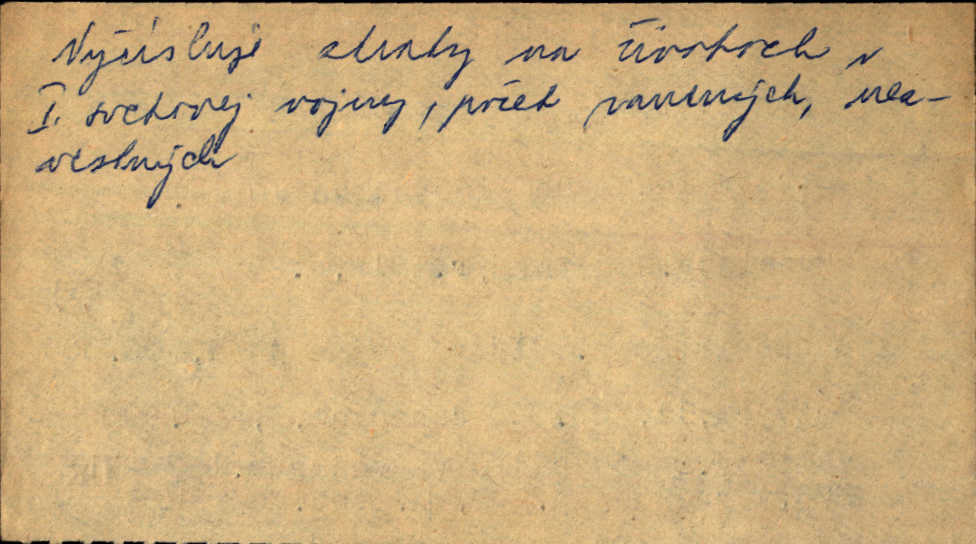 Vyčísluje straty na životoch v
I. svetovej vojny, počet ranených, nez-
vestných